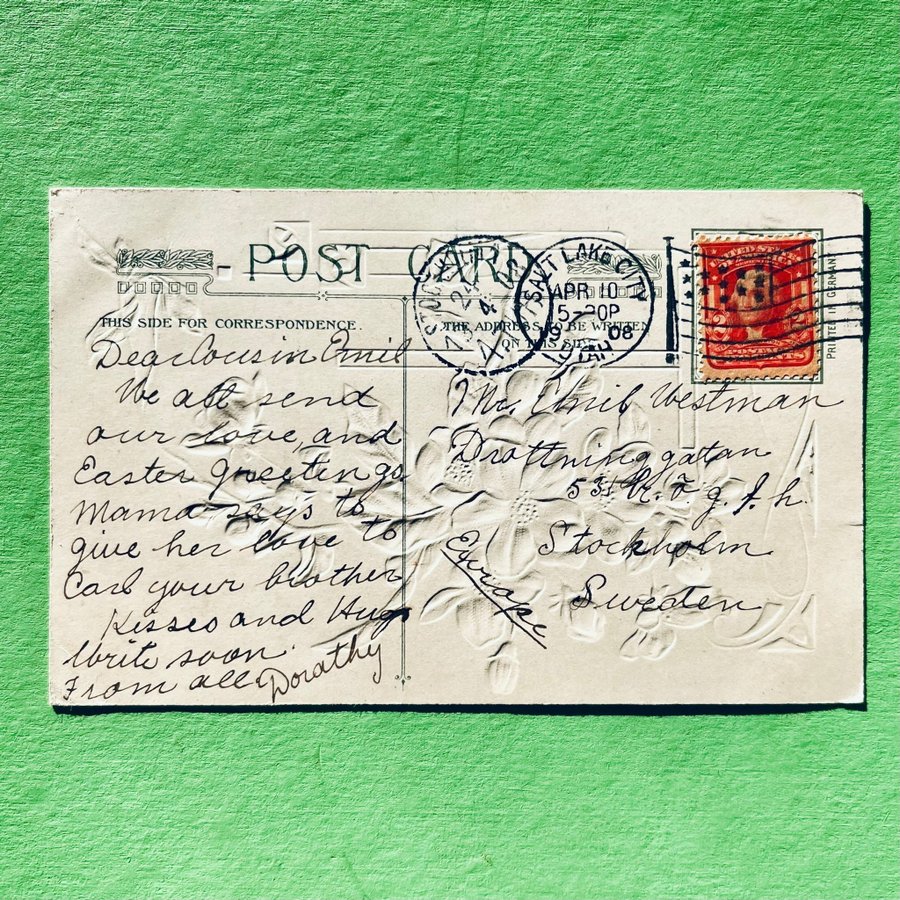 POST CARD
THIS SIDE FOR CORRESPONDENCE.
THE ADDRESS TO BE WRITTEN
ON THIS SIDE
STOCKHOLM
24
4
SALT LAKE CITY
APR 10
5-30P
08
UTAH
PRINTED IN GERMANY
Dear Cousin Emil
We all send
our love, and
Easter Greetings
Mama says to
give her love to
Carl your brother
Kisses and Hugs
Write soon.
From all. Dorathy
Mr. Emil Westman
Drottninggatan
53
Stockholm
Sweden
Europe